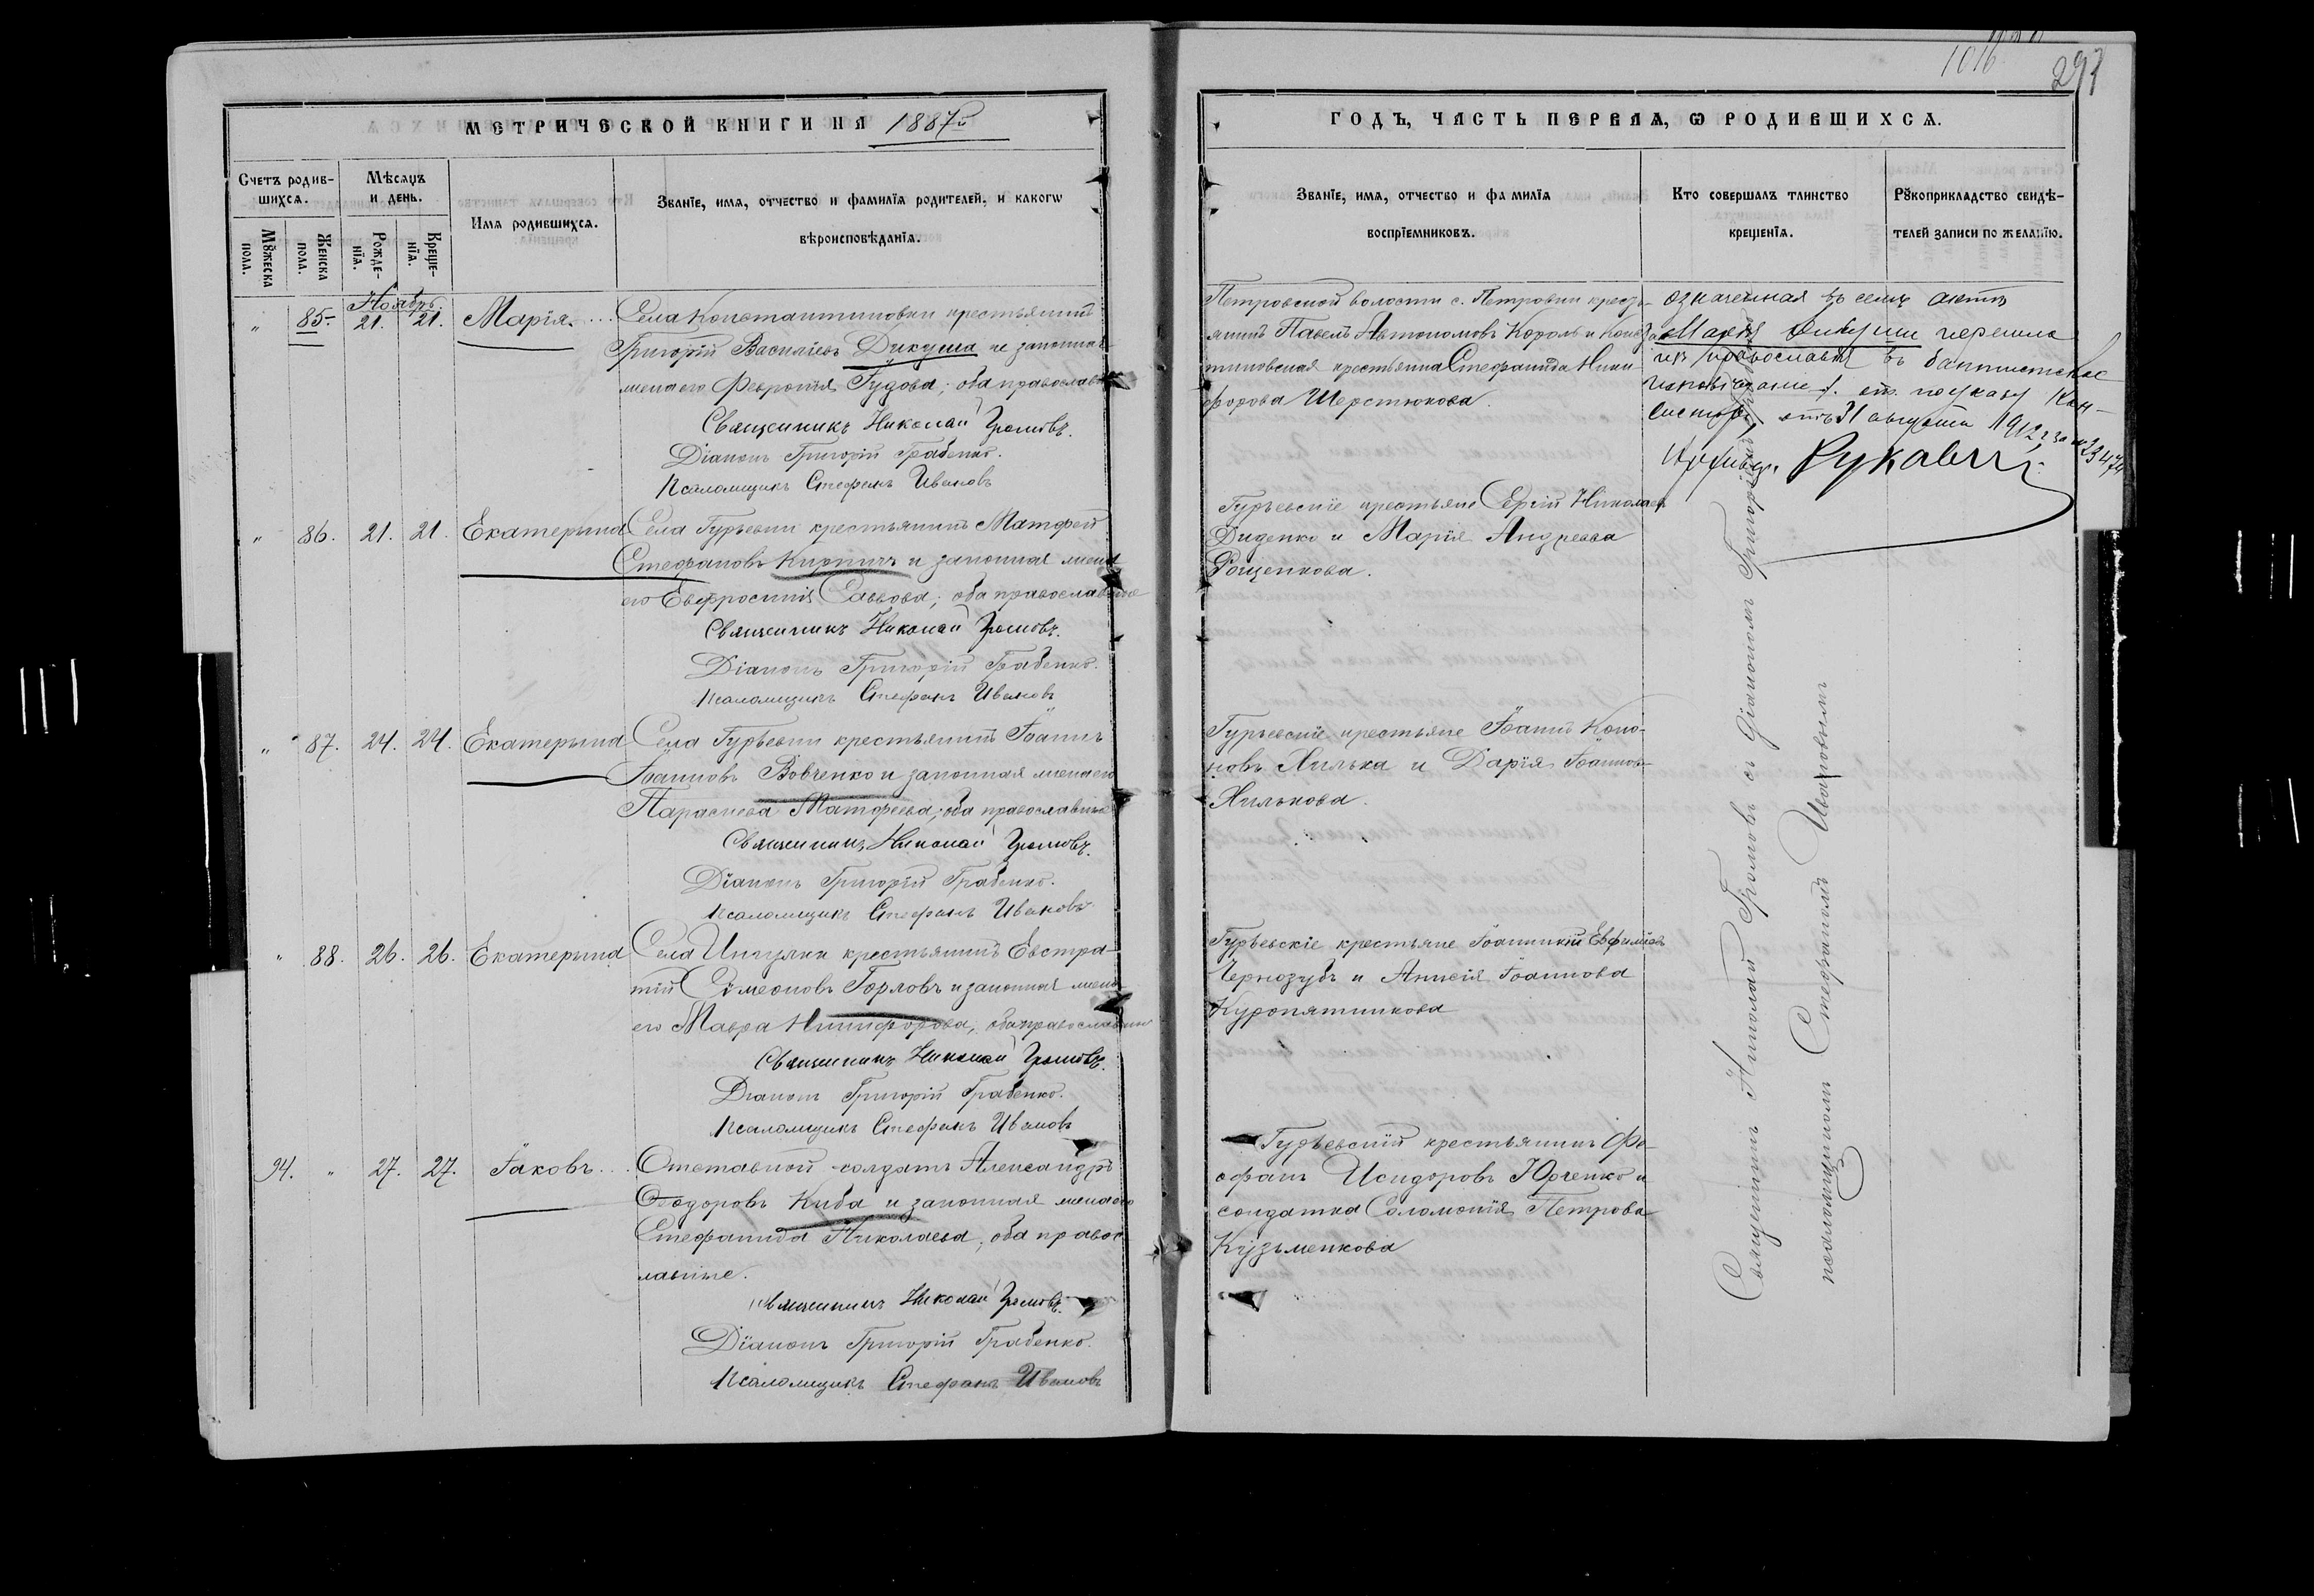 МЕТРИЧЕСКОЙ КНИГИ НА 1887й
Счетъ родив-
шихся.
Мѣсяцъ
и день.
Имя родившихся.
Званїе, имя, отчество и фамилїя родителей, и какогѡ
вѣроисповѣданїя.
Мꙋжеска
пола.
Женска
пола.
Рожде-
нїя.
Креще-
нїя.
Ноябрь
" 85. 21. 21. Марія.
Села Константиновки крестьянинъ
Григорій Василіевъ Дикуша и законная
жена его Февронія Гудова; оба православн
Священникъ Николай Громовъ.
Діаконъ Григорій Грабенко.
Псаломщикъ Стефанъ Ивановъ
" 86. 21. 21. Екатерина
Села Гурьевки крестьянинъ Матфей
Стефановъ Кирпичъ и законная жена
его Евфросинія Саввова; оба православные
Священникъ Николай Громовъ.
Діаконъ Григорій Грабенко.
Псаломщикъ Стефанъ Ивановъ
" 87. 24. 24. Екатерина
Села Гурьевки крестьянинъ Іоаннъ
Іоанновъ Вовченко и законная жена его
Параскева Матфеева; оба православные
Священникъ Николай Громовъ.
Діаконъ Григорій Грабенко.
Псаломщикъ Стефанъ Ивановъ
" 88. 26. 26. Екатерина
Села Ингулки крестьянинъ Евстра-
тій Симеоновъ Горловъ и законная жена
его Мавра Никифорова; оба православны
Священникъ Николай Громовъ.
Діаконъ Григорій Грабенко.
Псаломщикъ Стефанъ Ивановъ
94. " 27. 27. Іаковъ
Отставной солдатъ Александръ
Ѳеодоровъ Киба и законная жена его
Стефанида Николаева; оба правос
лавные.
Священникъ Николай Громовъ.
Діаконъ Григорій Грабенко.
Псаломщикъ Стефанъ Ивановъ
1016
ГОДЪ, ЧАСТЬ ПЕРВАЯ, Ѡ РОДИВШИХСЯ.
Званїе, имя, отчество и фамилїя
воспрїемниковъ.
Кто совершалъ таинство
крещенїя.
Рꙋкоприкладство свидѣ-
телей записи по желанїю.
Петровской волости с. Петровки кресть-
янинъ Павелъ Автономовъ Король и Конста
тиновская крестьянка Стефанида Ники
форова Шерстюкова.
Означенная въ семъ актѣ
Марія Дикуша перешла
изъ православія въ баптистское
по указу Кон-
систоріи отъ 31 августа 1912 г за № 23474
Рукавич
Гурьевскіе крестьяне Сергій Николаев
Диденко и Марія Андреева
Рощенкова.
Гурьевскіе крестьяне Іоаннъ Коно-
новъ Хилька и Дарія Іоаннов-
Хилькова.
Гурьевскіе крестьяне Іоанникій Евфиміевъ
Чернозубъ и Анисія Іоаннова
Куропятникова
Гурьевскій крестьянинъ Фе-
офанъ Исидоровъ Юрченко и
солдатка Соломонія Петрова
Кузьменкова
Священникъ Николай Громовъ съ діакономъ Григоріемъ
псаломщикомъ Стефаномъ Ивановымъ